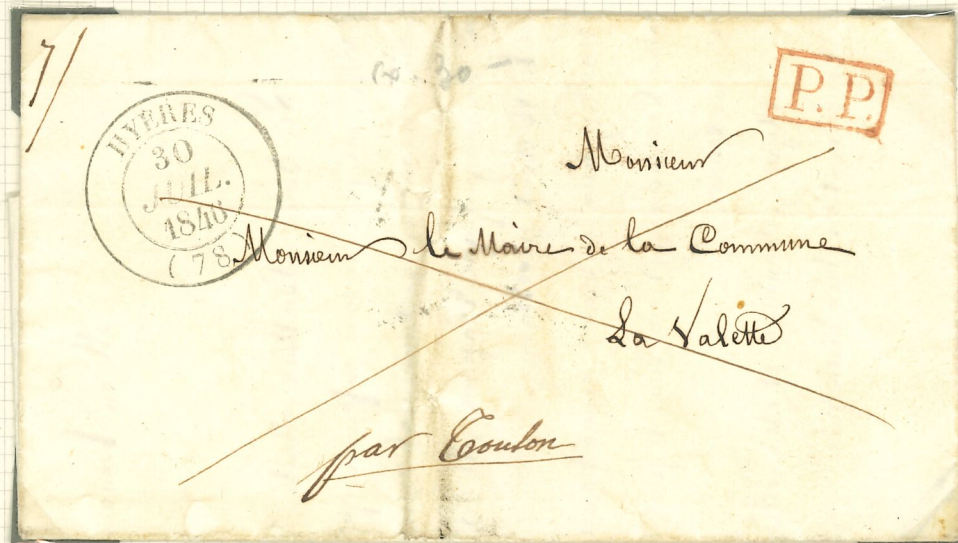 7/
P.P.
HYÈRES
30
JUIL.
1846
(78)
Monsieur
Monsieur le Maire de la Commune
La Valette
par Toulon